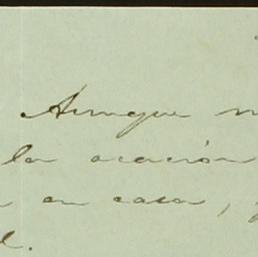 Aunque
la ocasión
en casa,